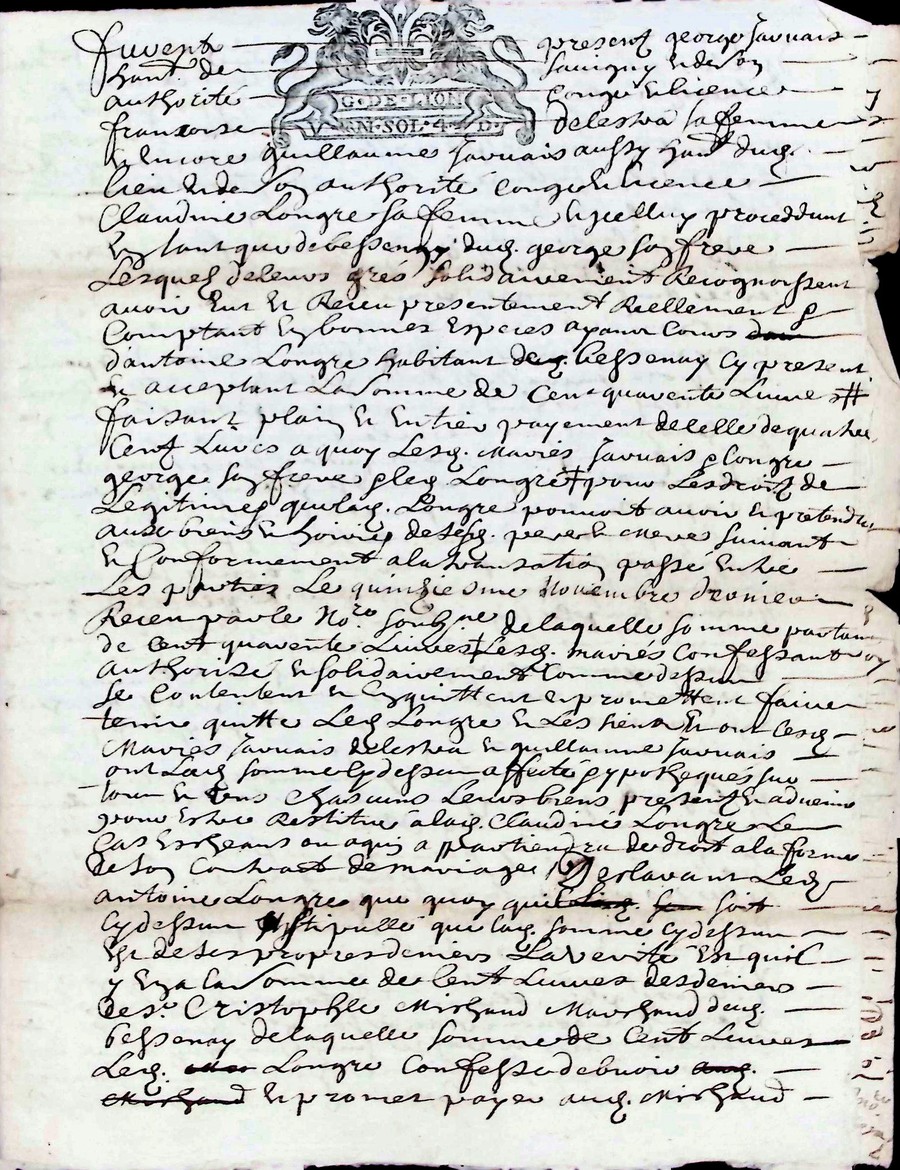 furent presents george Jarnais
habt. de Savigny et de son
G·DE·LION
EN·SOL·4·D·
authorité congé et licence
francoise delestra sa femme
et Encore guillaume Jarnais aussy habt. dud.
lieu et de son authorité congé et licence
Claudine Longre sa femme et icelluy proceddant
En tant que de bessenay dud. george son frere
Lesquels de leurs grés solidairement Recognoissent
avoir Eut et Receu presentement Reellement &
Comptant En bonnes Especes ayant Cours
d'antoine Longre habitant dud. bessenay Cy present
et acceptant La somme de Cent quarente Livres
faisant plain et Entier payement de celle de quatre
Cent Livres a quoy Lesd. Mariés Jarnais & Longre
george son frere & led. Longre pour Les droits de
Legitimes que lad. Longre pouvoit avoir et pretendre
aux biens et hoiries de sesd. pere et Mere suivant
et Conformement a la transation passé Entre
Les parties Le quinzieme Novembre dernier
Receu par le No.re soubz.né de laquelle somme partant
de cent quarente Livres Lesd. mariés Confessant
authorisé et solidairement Comme dessus
se Contentent et En quittent et promettent faire
tenir quitte Led. Longre et Les siens Et ont Lesd.
Mariés Jarnais delestra et guillaume Jarnais
ont Lad. somme Cy dessus affecté & ypothequés sur
tous et uns Chascuns Leurs biens presents et advenir
pour Estre Restitué a lad. Claudine Longre Le
Cas Escheant ou a qui appartiendra de droit a la forme
de son Contract de mariage declarant Led.
antoine Longre que quoy quil soit
Cy dessus stipullé que lad. somme Cy dessus
Est de ses propres deniers La verité Est quil
y En a la somme de Cent Livres des deniers
de s.r Cristophle Michaud Marchand dud.
bessenay de laquelle somme de Cent Livres
Led. Longre Confesse debvoir
Et promet payer aud. Michaud